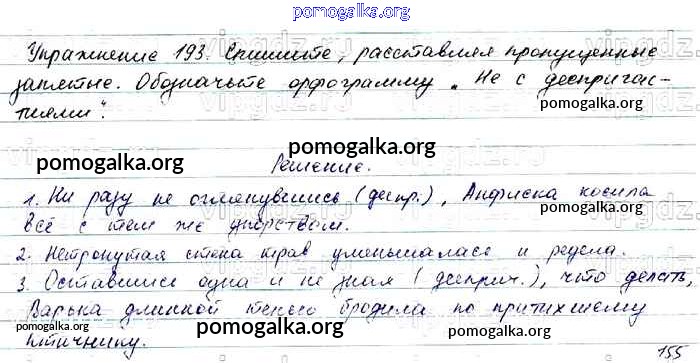 pomogalka.org
Упражнение 193. Спишите, расставляя пропущенные
запятые. Обозначьте орфограмму „Не с деепричас-
тиями".
pomogalka.org
pomogalka.org
pomogalka.org
Решение.
1. Ни разу не оглянувшись (деепр.), Анфиска косила
всё с тем же упорством.
2. Нетронутая стена трав уменьшалась и редела.
3. Оставшись одна и не зная (дееприч.), что делать,
Варька длинной тенью бродила по притихшему
птичнику.
pomogalka.org
pomogalka.org
pomogalka.org
155